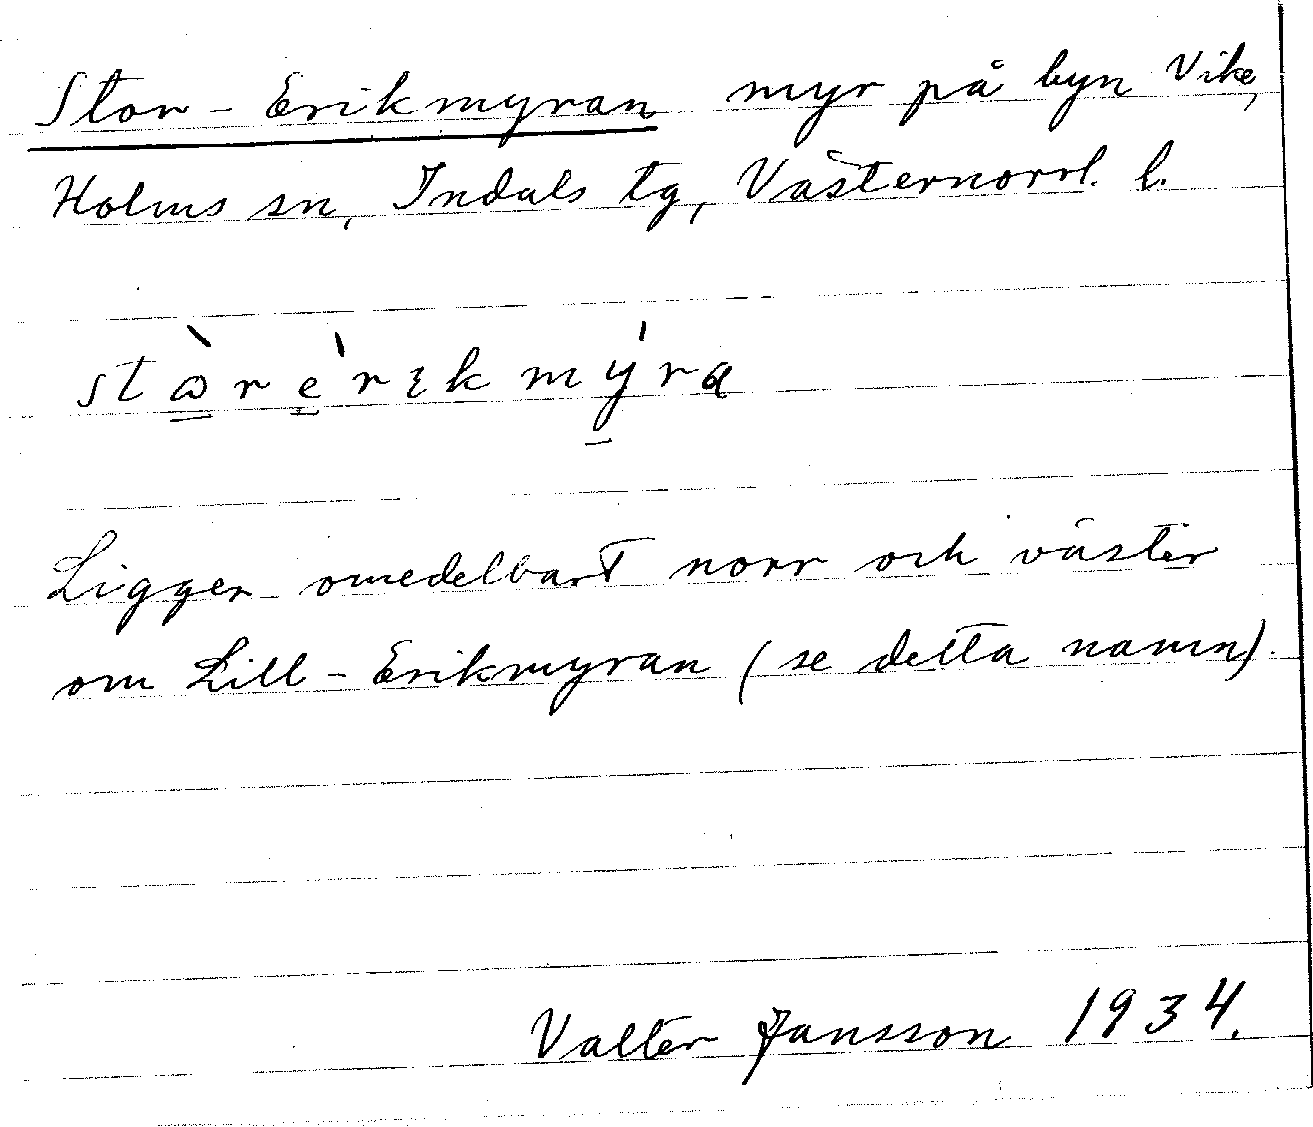 Stor-Erikmyran myr på byn Vike,
Holms sn, Indals tg, Västernorrl. l.
stɷ̀rèrɩkmýra
Ligger omedelbart norr och väster
om Lill-Erikmyran (se detta namn).
Valter Jansson 1934.